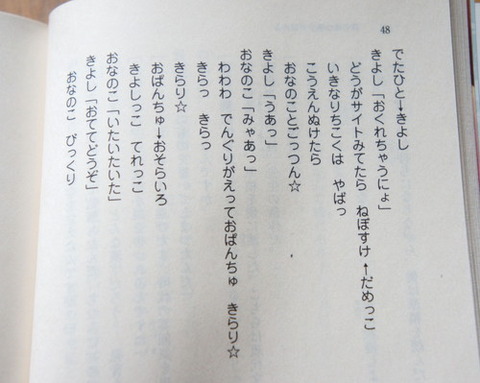 48
でたひと→きよし
きよし「おくれちゃうにょ」
どうがサイトみてたら　ねぼすけ←だめっこ
いきなりちこくは　やばっ
こうえんぬけたら
おなのことごっつん☆
きよし「うあっ」
おなのこ「みゃあっ」
わわわ　でんぐりがえっておぱんちゅ　きらり☆
きらっ　きらっ
きらり☆
おぱんちゅ→おそらいろ
きよしっこ　てれっこ
おなのこ「いたいたいた」
きよし「おててどうぞ」
おなのこ　びっくり